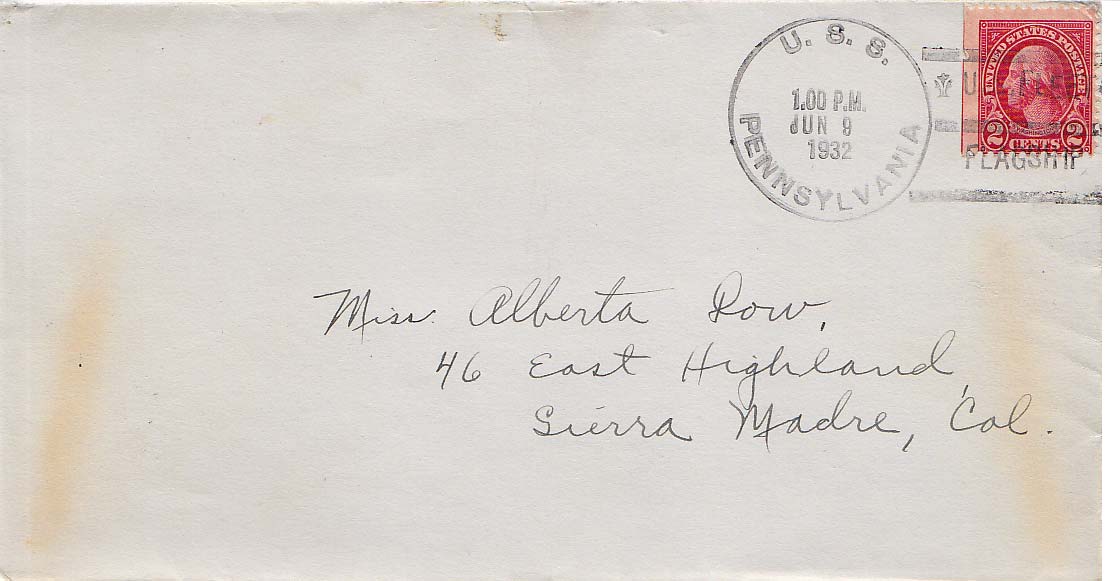 U. S. S.
PENNSYLVANIA
1.00 P.M.
JUN 9
1932
U. S. FLEET
FLAGSHIP
UNITED STATES POSTAGE
WASHINGTON
2 CENTS 2
Miss. Alberta Dow,
46 East Highland,
Sierra Madre, Cal.